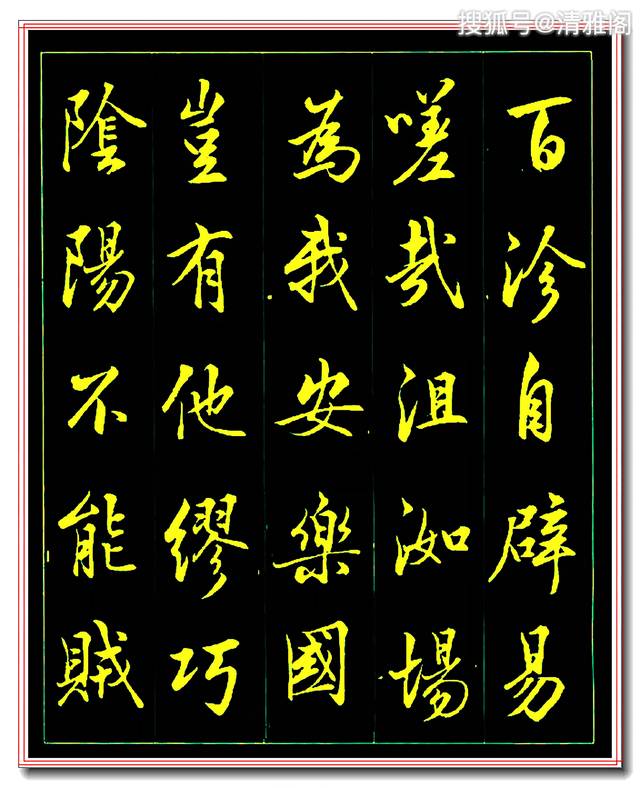 搜狐号@清雅阁
百沴自辟易
嗟哉沮洳場
為我安樂國
豈有他繆巧
陰陽不能賊